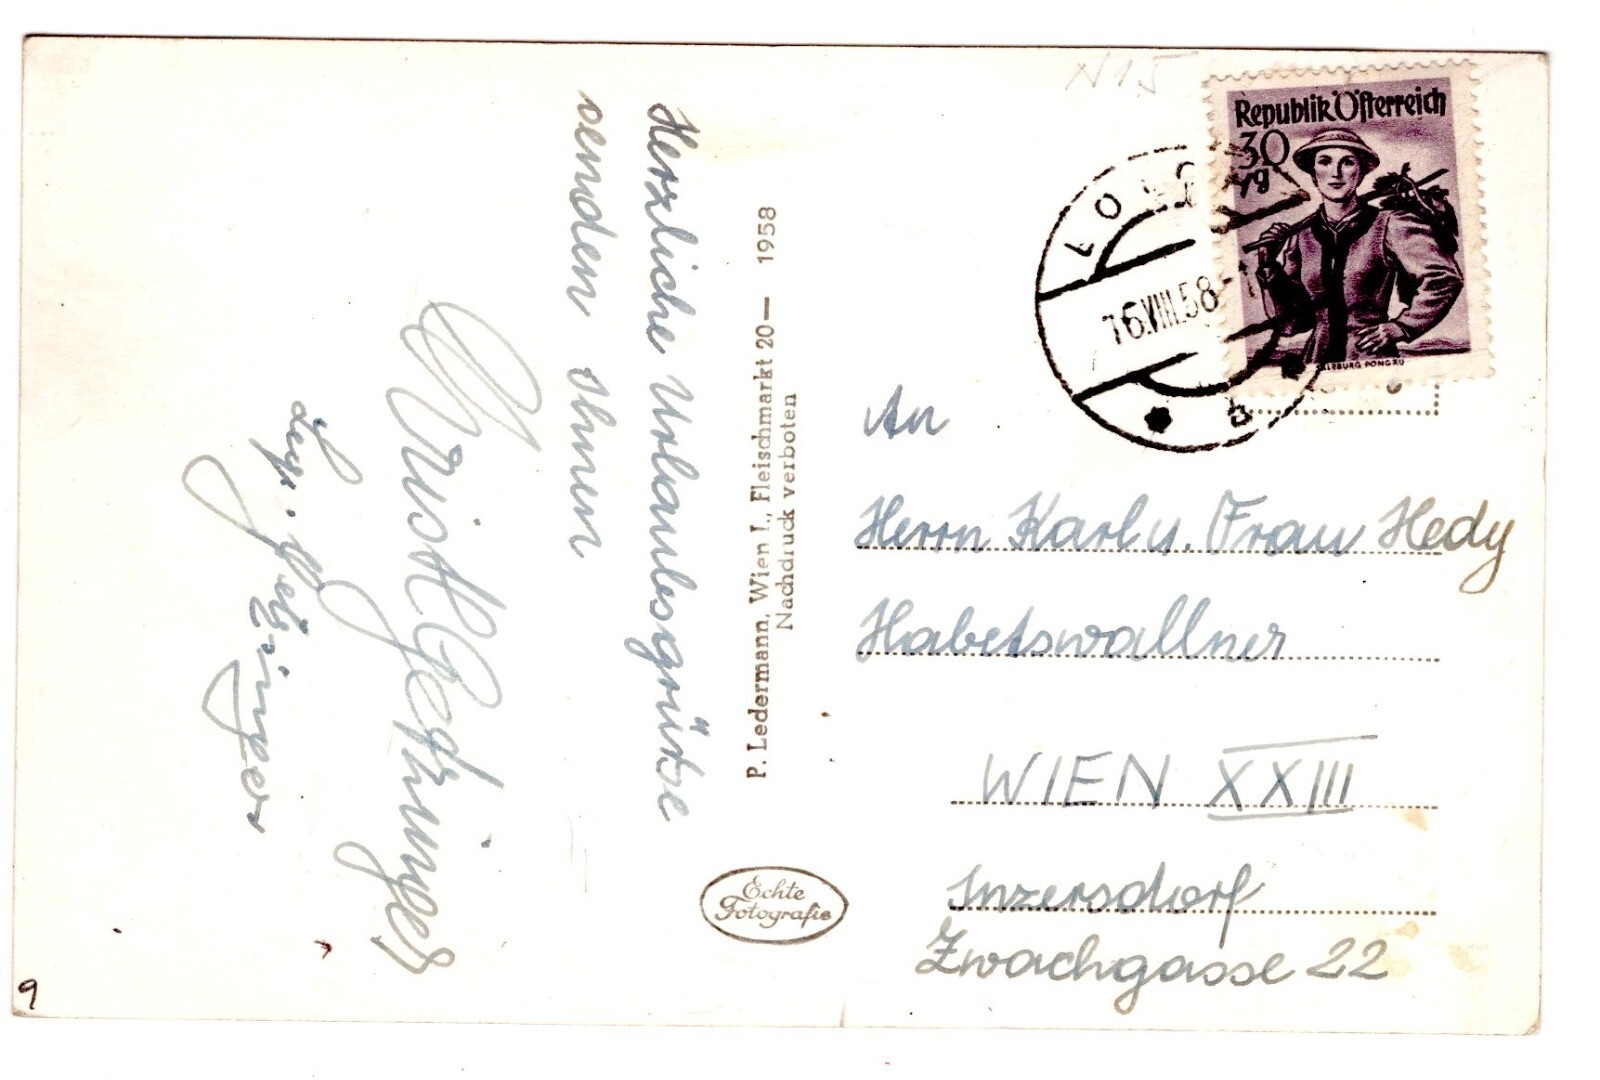 N15
Republik Österreich
30
SALZBURG PONGAU
16.VIII.58
b
Herzliche Urlaubsgrüße
senden Ihnen
P. Ledermann, Wien I., Fleischmarkt 20— 1958
Nachdruck verboten
Echte
Fotografie
An
Herrn Karl u. Frau Hedy
Habetswallner
WIEN XXIII
Inzersdorf
Zwachgasse 22
9